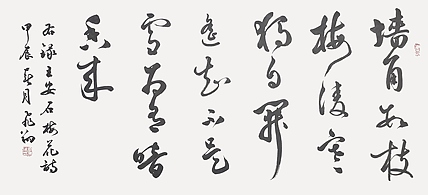 墙角数枝
梅凌寒
独自開
遥知不是
雪為有暗
香来
右録王安石梅花詩
甲辰 月